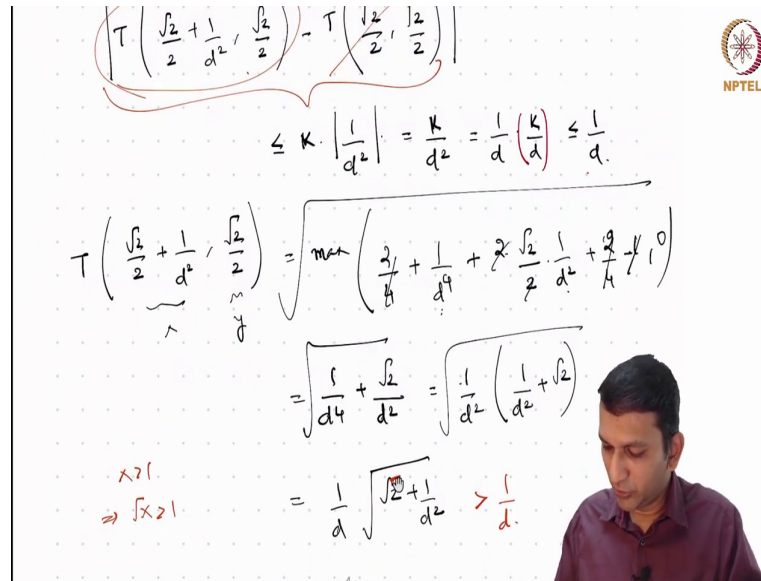 | T ( √2/2 + 1/d² , √2/2 ) - T ( √2/2 , √2/2 ) |
NPTEL
≤ K · | 1/d² | · = K/d² = 1/d · ( K/d ) ≤ 1/d .
T ( √2/2 + 1/d² , √2/2 ) = √( max ( 2/4 + 1/d⁴ + 2 · √2/2 · 1/d² + 2/4 - 1 , 0 ) )
x y
= √( 1/d⁴ + √2/d² ) = √( 1/d² ( 1/d² + √2 ) )
x ≥ 1
⇒ √x ≥ 1 = 1/d √( √2 + 1/d² ) > 1/d .